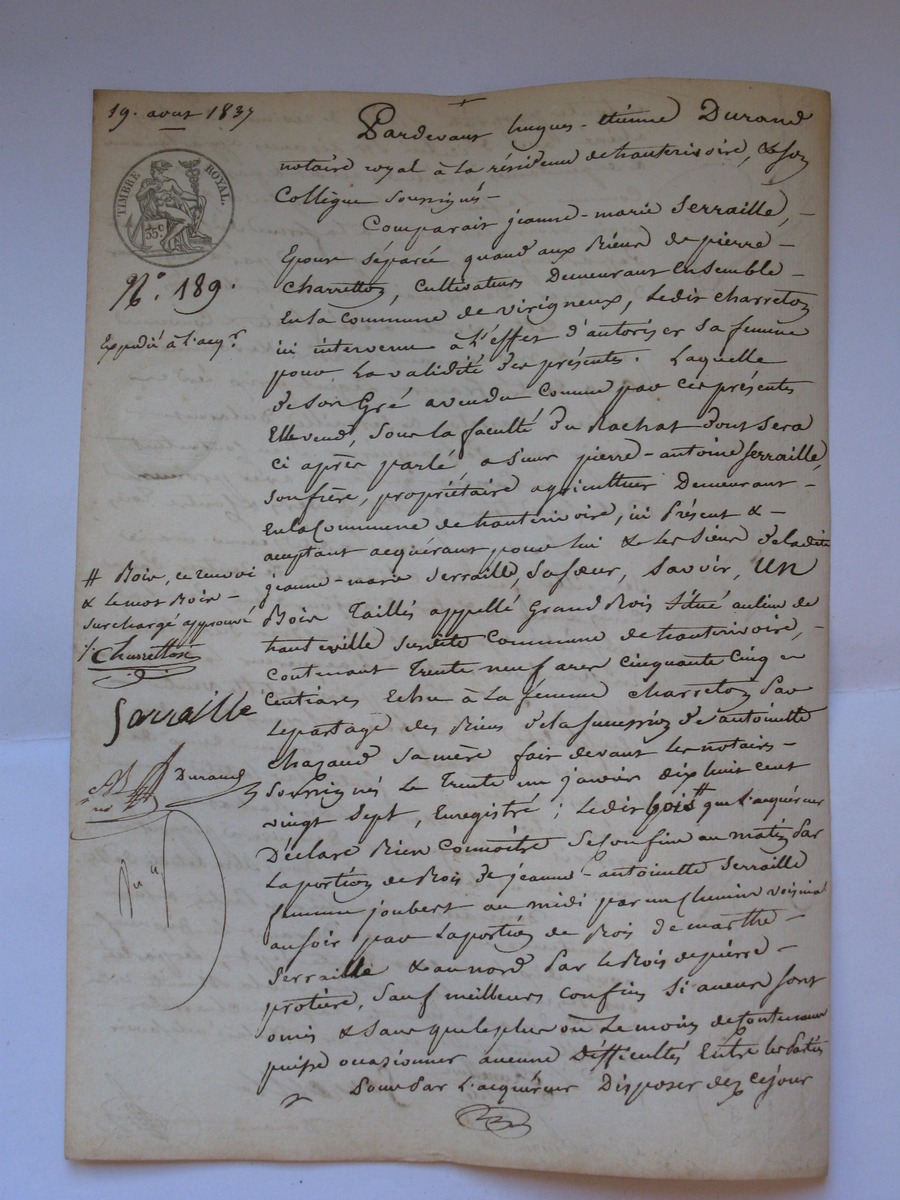 19. aout 1837
TIMBRE ROYAL.
35c.
N.° 189.
Expedié à l'acq.r
Pardevant hugues-étienne Durand
notaire royal à la résidence de hauterivoire, & son
Collègue soussignés -
Comparait jeanne-marie Serraille, -
Epouse séparée quand aux Biens de pierre -
Charretton, Cultivateurs Demeurant Ensemble -
En la Commune de virigneux, Ledit Charreton
ici intervenu à L'effet d'autoriser sa femme
pour La validité des présentes. Laquelle
de son Gré a vendu Comme par ces présentes
Elle vend, sous la faculté du Rachat dont sera
ci après parlé, a sieur pierre-antoine Serraille,
son frère, propriétaire agriculteur Demeurant -
En la Commune de hauterivoire, ici Présent & -
acceptant acquérant pour lui & les siens de ladite
jeanne-marie Serraille, sa sœur, savoir, UN
Bois Taillis appellé Grand Bois situé au lieu de
hauteville susdite Commune de hauterivoire, -
Contenant Trente neuf ares cinquante Cinq
Centiares Echu à La femme Charreton Par
Le partage des Biens de la succession d'antoinette
Chazaud sa mère fait devant Les notaires -
Soussignés Le Trente un janvier dix huit cent
vingt sept, Enregistré; Ledit bois # que L'acquéreur
Déclare Bien Connoitre se Confine au matin Par
La portion de Bois de jeanne-antoinette Serraille
femme joubert au midi par un Chemin voisinal
au soir par La portion de Bois de marthe -
Serraille & au nord Par le Bois de pierre -
protière, sauf meilleurs Confins si aucuns sont
omis & sans que le plus ou Le moins de Contenance
puisse occasionner aucune Difficultés Entre les Parties
Pour Par L'acquéreur Disposer dez Cejour
# Bois, ce renvoi
& le mot Bois -
surchargé approuvé
Charretton
Serraille
Durand